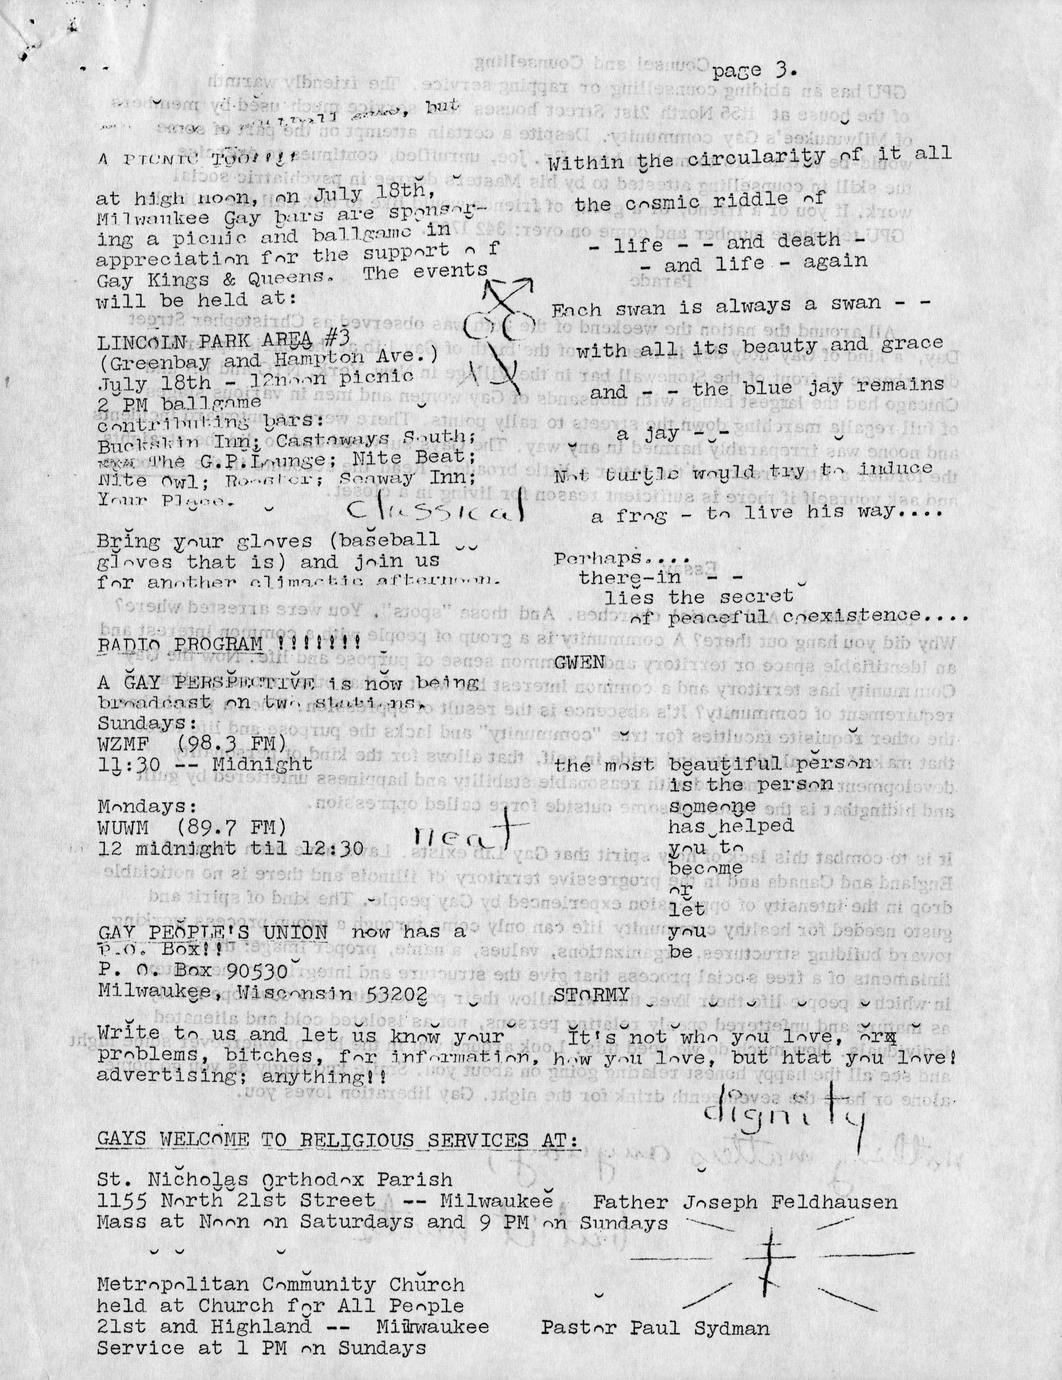 page 3.
but
A PICNIC TOO!!!!
at high noon, on July 18th,
Milwaukee Gay bars are sponsor-
ing a picnic and ballgame in
appreciation for the support of
Gay Kings & Queens. The events
will be held at:
LINCOLN PARK AREA #3
(Greenbay and Hampton Ave.)
July 18th - 12noon picnic
2 PM ballgame
contributing bars:
Buckskin Inn; Castaways South;
The G.P.Lounge; Nite Beat;
Nite Owl; Rooster; Seaway Inn;
Your Place.
classical
Bring your gloves (baseball
gloves that is) and join us
for another climactic afternoon.
RADIO PROGRAM !!!!!!!
A GAY PERSPECTIVE is now being
broadcast on two stations.
Sundays:
WZMF (98.3 FM)
11:30 -- Midnight
Mondays:
WUWM (89.7 FM)
12 midnight til 12:30
neat
GAY PEOPLE'S UNION now has a
P.O. Box!!
P. O. Box 90530
Milwaukee, Wisconsin 53202
Write to us and let us know your
problems, bitches, for information,
advertising; anything!!
Within the circularity of it all
the cosmic riddle of
- life - - and death -
- and life - again
Each swan is always a swan - -
with all its beauty and grace
and - - the blue jay remains
a jay -.-
Not turtle would try to induce
a frog - to live his way....
Perhaps....
there-in - -
lies the secret
of peaceful coexistence....
GWEN
the most beautiful person
is the person
someone
has helped
you to
become
or
let
you
be
STORMY
It's not who you love, orx
how you love, but htat you love!
dignity
GAYS WELCOME TO RELIGIOUS SERVICES AT:
St. Nicholas Orthodox Parish
1155 North 21st Street -- Milwaukee Father Joseph Feldhausen
Mass at Noon on Saturdays and 9 PM on Sundays
Metropolitan Community Church
held at Church for All People
21st and Highland -- Milwaukee Pastor Paul Sydman
Service at 1 PM on Sundays